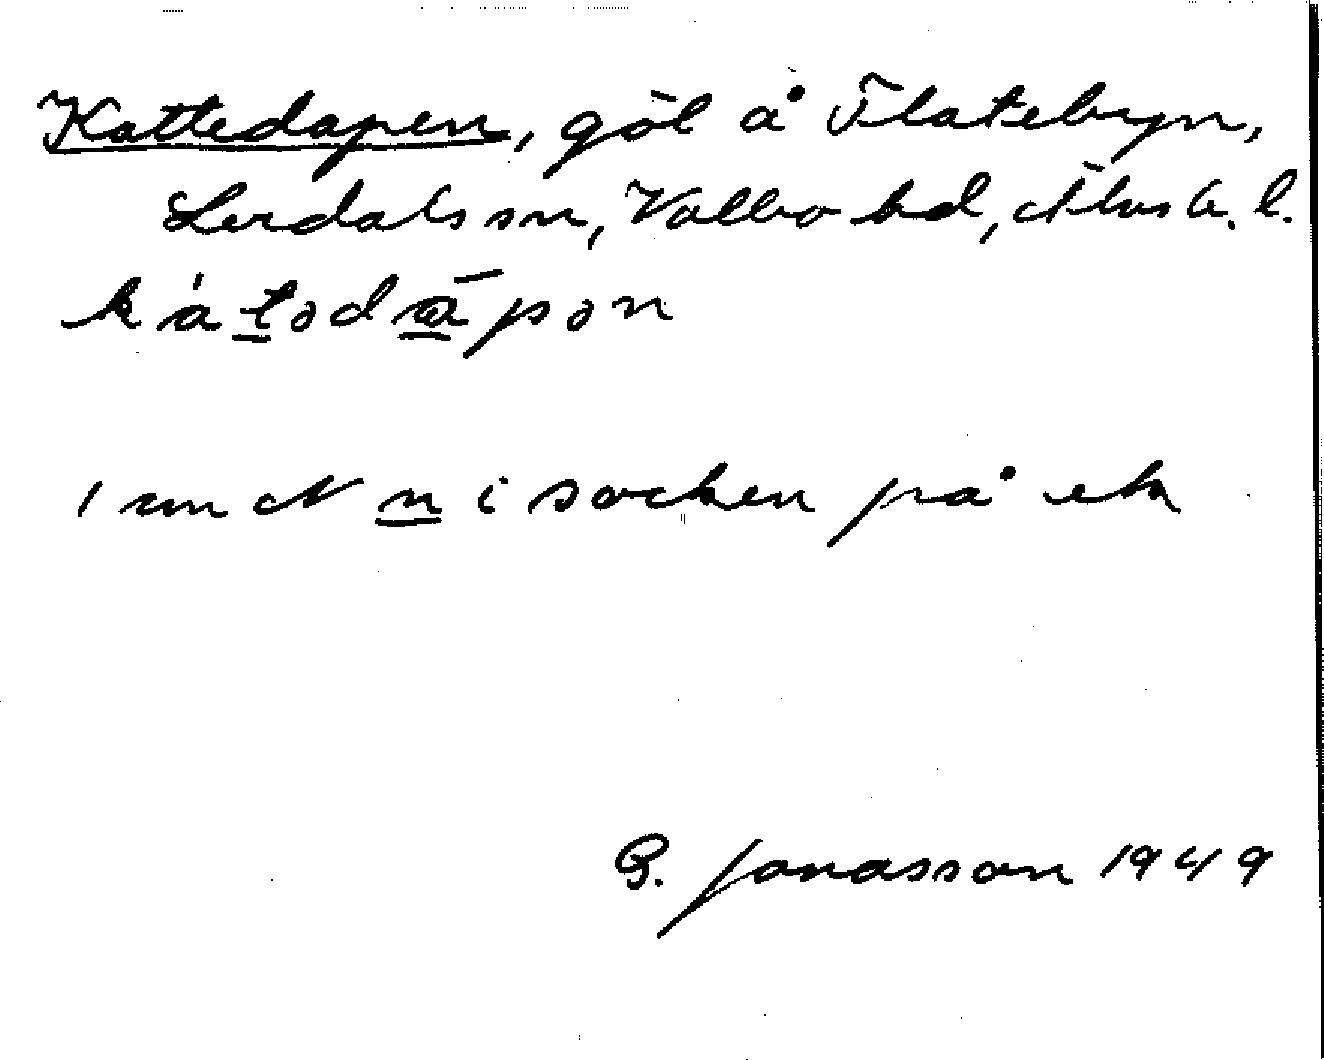 Kattedapen, göl å Flatebyn,
Lerdals sn, Valbo hd, Älvsb. l.
ká̀tədāpən
1 cm N n i socken på ek
G. Jonasson 1949